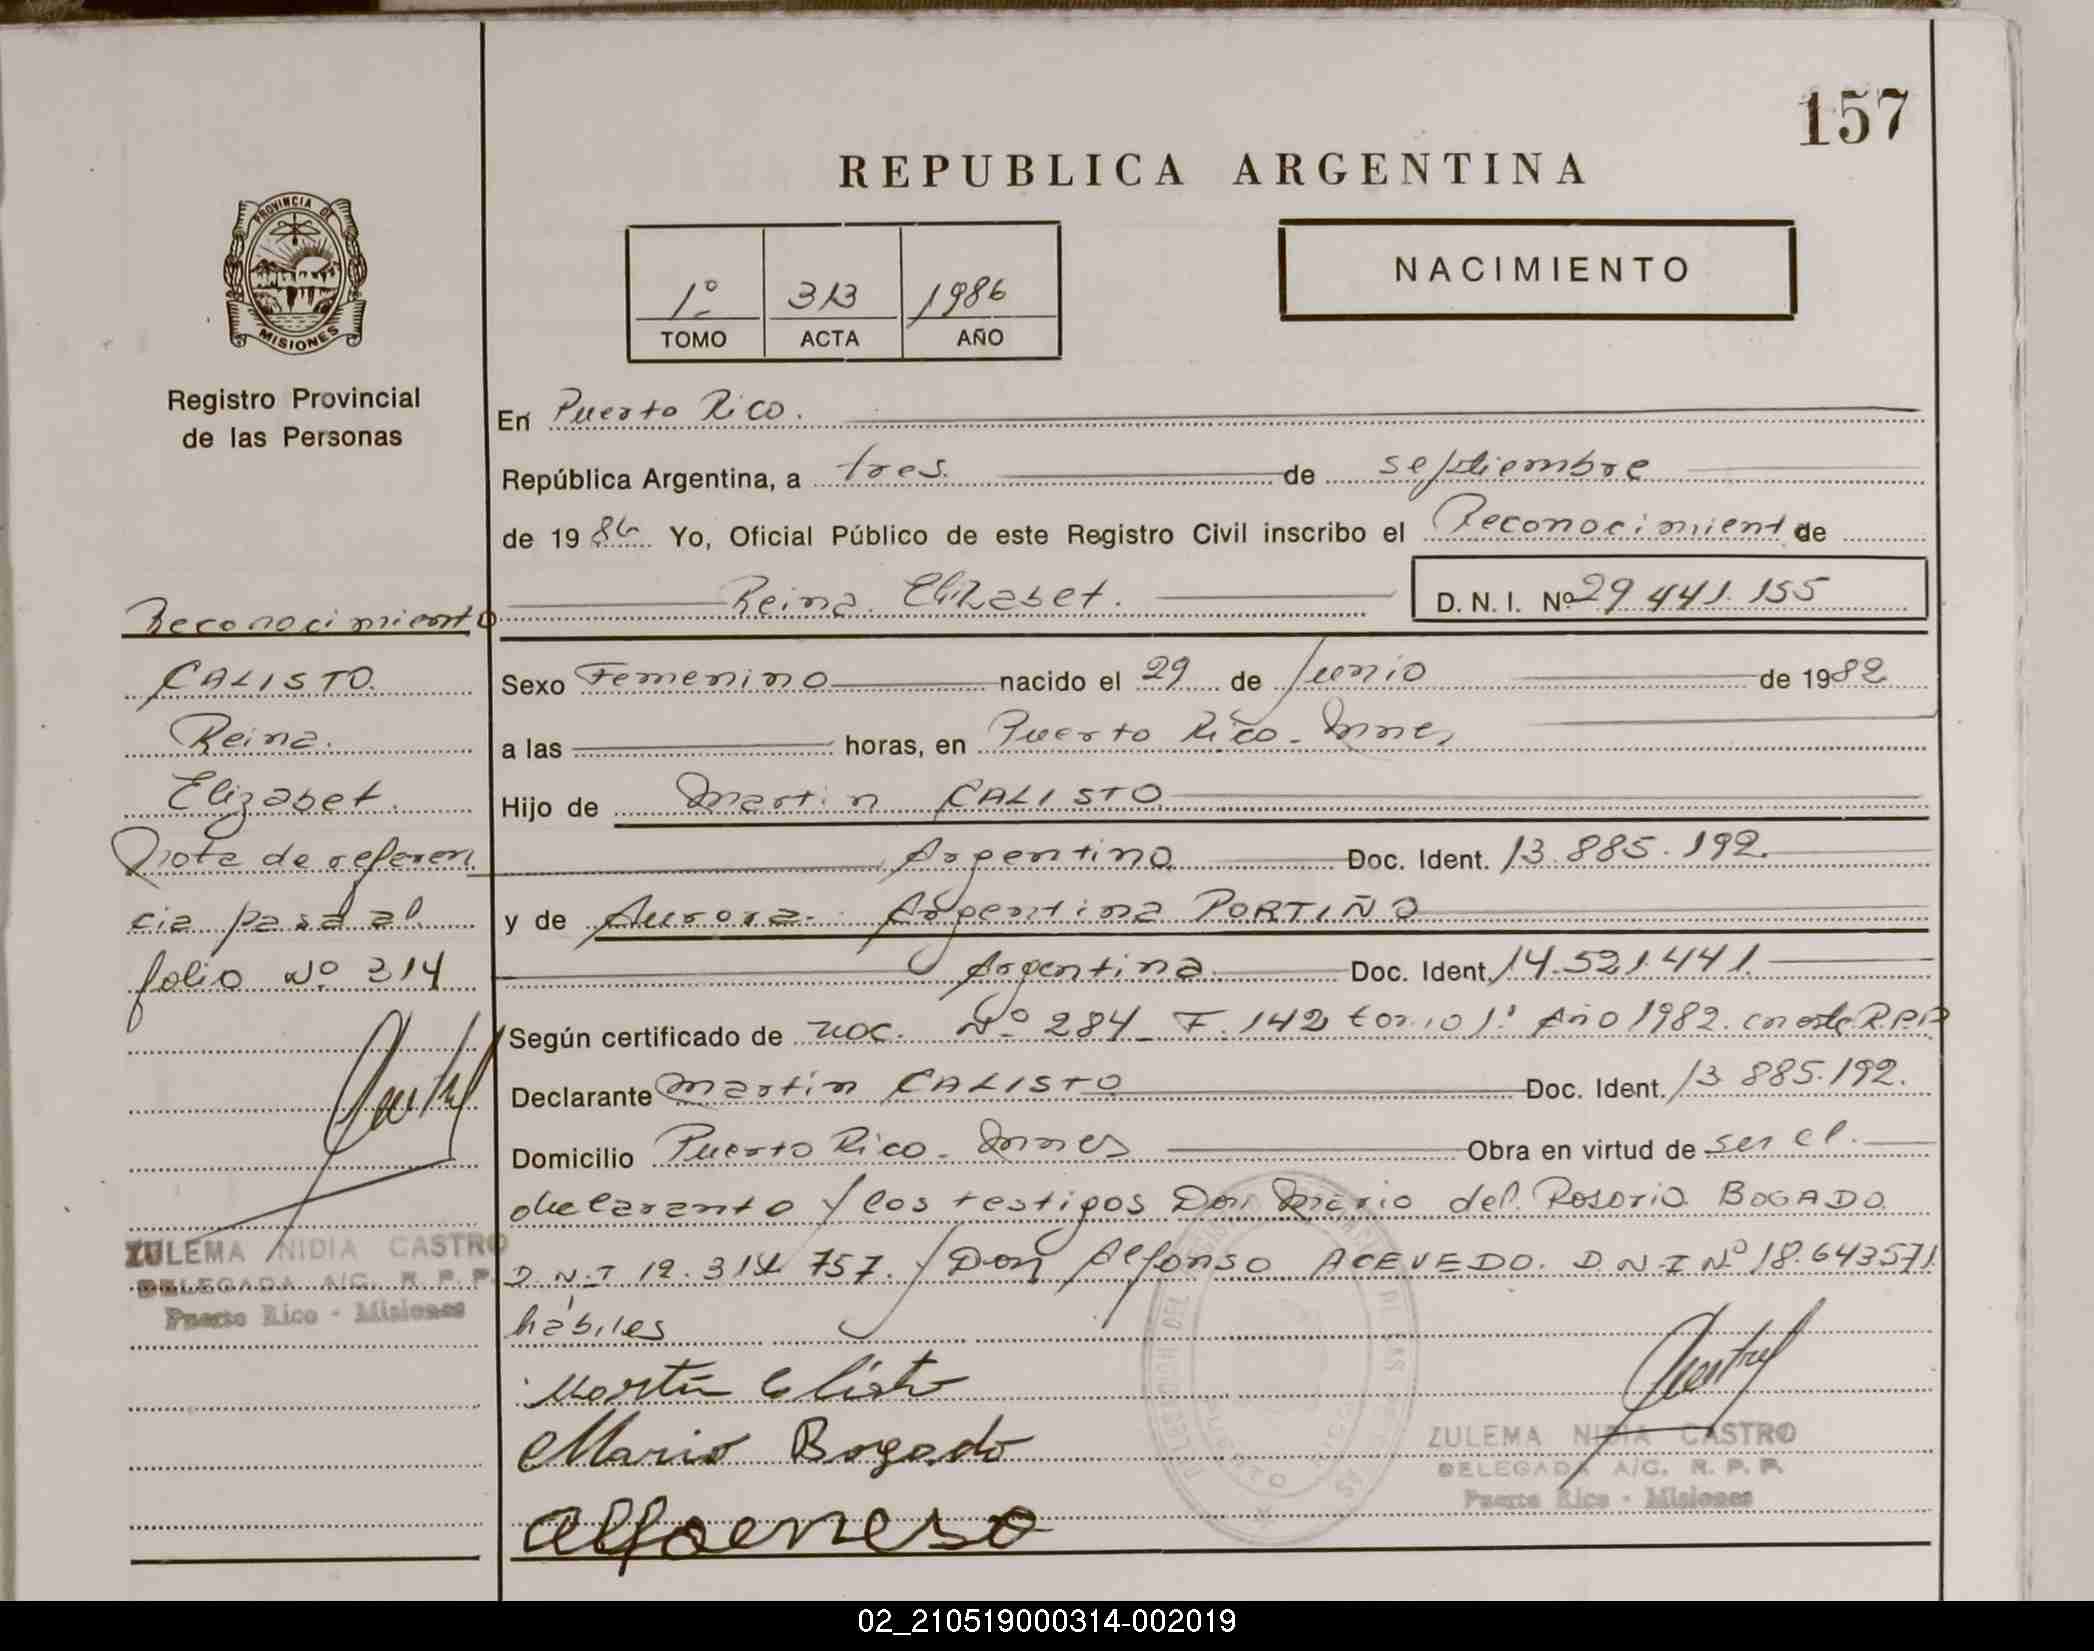 157
REPUBLICA ARGENTINA
PROVINCIA DE
MISIONES
1º 313 1986
TOMO ACTA AÑO
NACIMIENTO
Registro Provincial
de las Personas
En Puerto Rico.
República Argentina, a tres. de septiembre
de 1986 Yo, Oficial Público de este Registro Civil inscribo el Reconocimient de
Reina Elizabet. D. N. I. Nº 29 441.155
Reconocimiento
CALISTO.
Reina.
Elizabet.
Nota de referen
cia pasa al
folio Nº 314
ZULEMA NIDIA CASTRO
DELEGADA A/C. R. P. P.
Puerto Rico - Misiones
Sexo Femenino nacido el 29 de Junio de 1982
a las horas, en Puerto Rico - Mnes
Hijo de Martin CALISTO
Argentino Doc. Ident. 13.885.192.
y de Aurora Argentina PORTIÑO
Argentina Doc. Ident. 14.521.441.
Según certificado de Nº 284 F. 142 tomo 1º Año 1982. en este R.P.P
Declarante Martin CALISTO Doc. Ident. 13 885.192.
Domicilio Puerto Rico - Mnes Obra en virtud de ser el.
declarante y los testigos Don Mario del Rosorio BOGADO
D.N.I 12.314 757. y Don Alfonso ACEVEDO. D.N.I Nº 18.643571
hábiles
Martin Calisto
Mario Bogado
ZULEMA NIDIA CASTRO
DELEGADA A/C. R. P. P.
Puerto Rico - Misiones
02_210519000314-002019